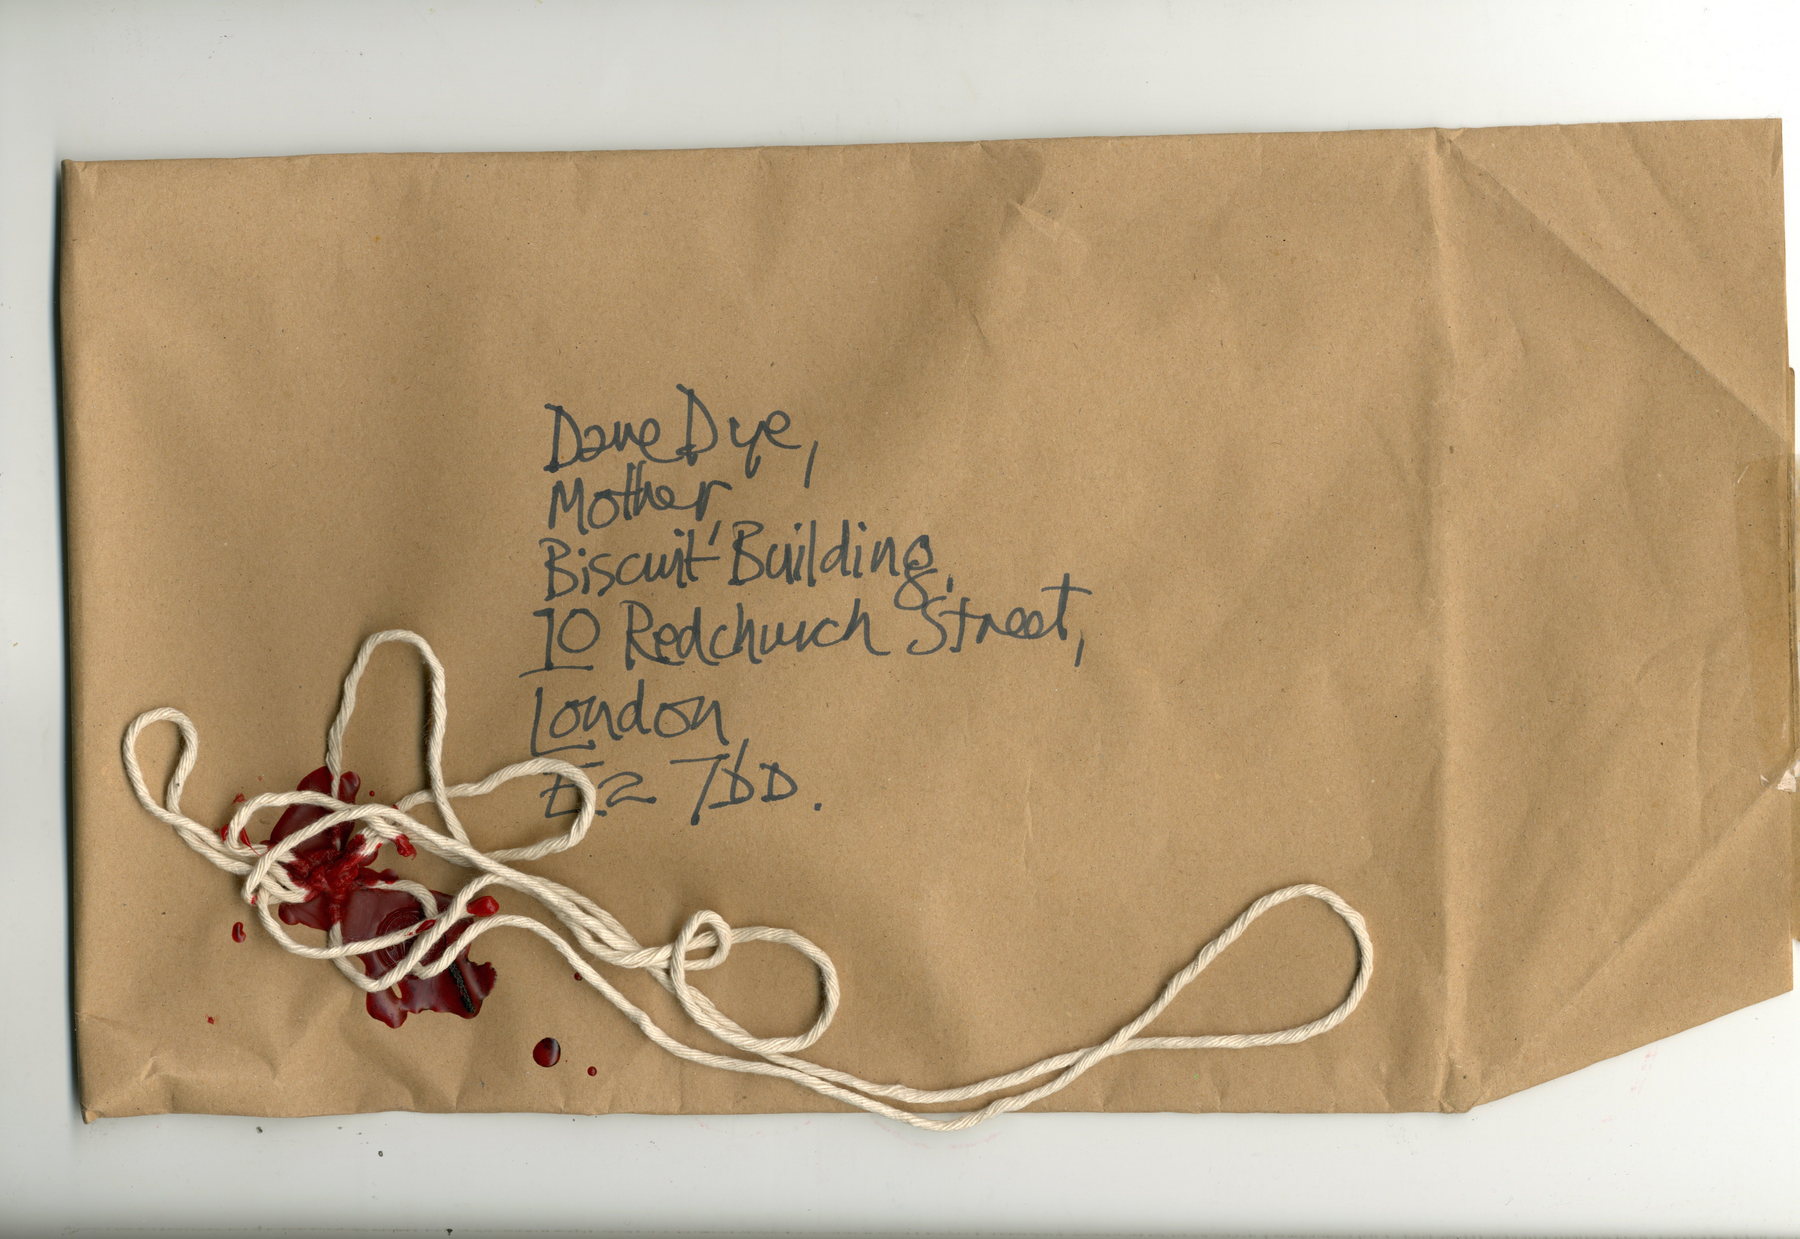 Dave Dye,
Mother,
Biscuit Building,
10 Redchurch Street,
London,
E2 7DD.